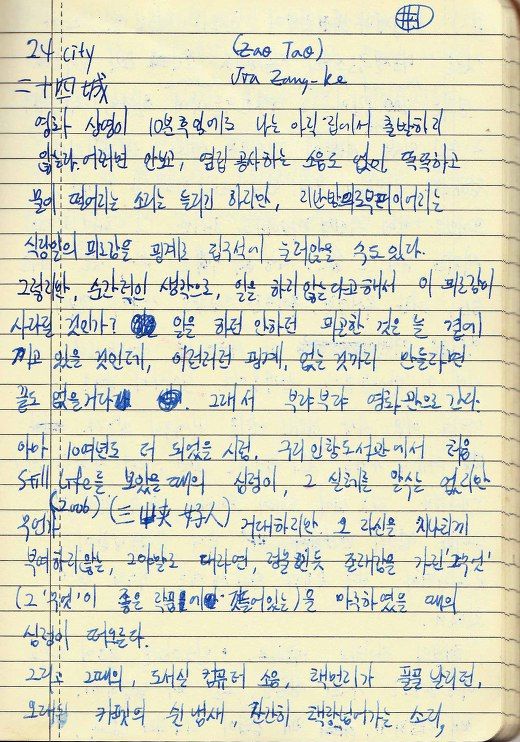 #1
24 city (Zao Tao)
二十四城 Jia Zang-ke
영화 상영이 10분후임에도 나는 아직 집에서 출발하지
않는다. 어제처럼 안보고, 옆집 공사하는 소음도 없이, 똑똑하고
물이 떨어지는 소리는 들리지 하지만,
식당일의 피로감을 핑계로 집구석에 눌러앉을 수도 있다.
그렇지만, 순간적인 생각으로, 일을 하지 않는다고 해서 이 피로감이
사라질 것인가? 일을 하던 안하던 피곤한 것은 늘 곁에
지고 있을 것인데, 이런저런 핑계, 없는 것까지 만들라면
끝도 없을거다. 그래서 부랴부랴 영화관으로 간다.
아마 10여년도 더 되었을 시점, 구리인창도서관에서 처음
Still Life를 보았을 때의 심정이, 그 실체를 알수는 없지만
(2006) (三峡好人)
무언가 거대하지만 또 자신을 지나치게
부연하지않는, 그야말로 대자연, 존재감을 가진 '무엇'
(그 '무엇'이 좋은 작품에 깃들어있는)을 마주하였을 때의
심정이 떠오른다.
그리고 그때의, 도서실 컴퓨터 소음, 책먼지가 풀풀 날리던,
오래된 카펫의 쉰 냄새, 간간히 책장넘어가는 소리,